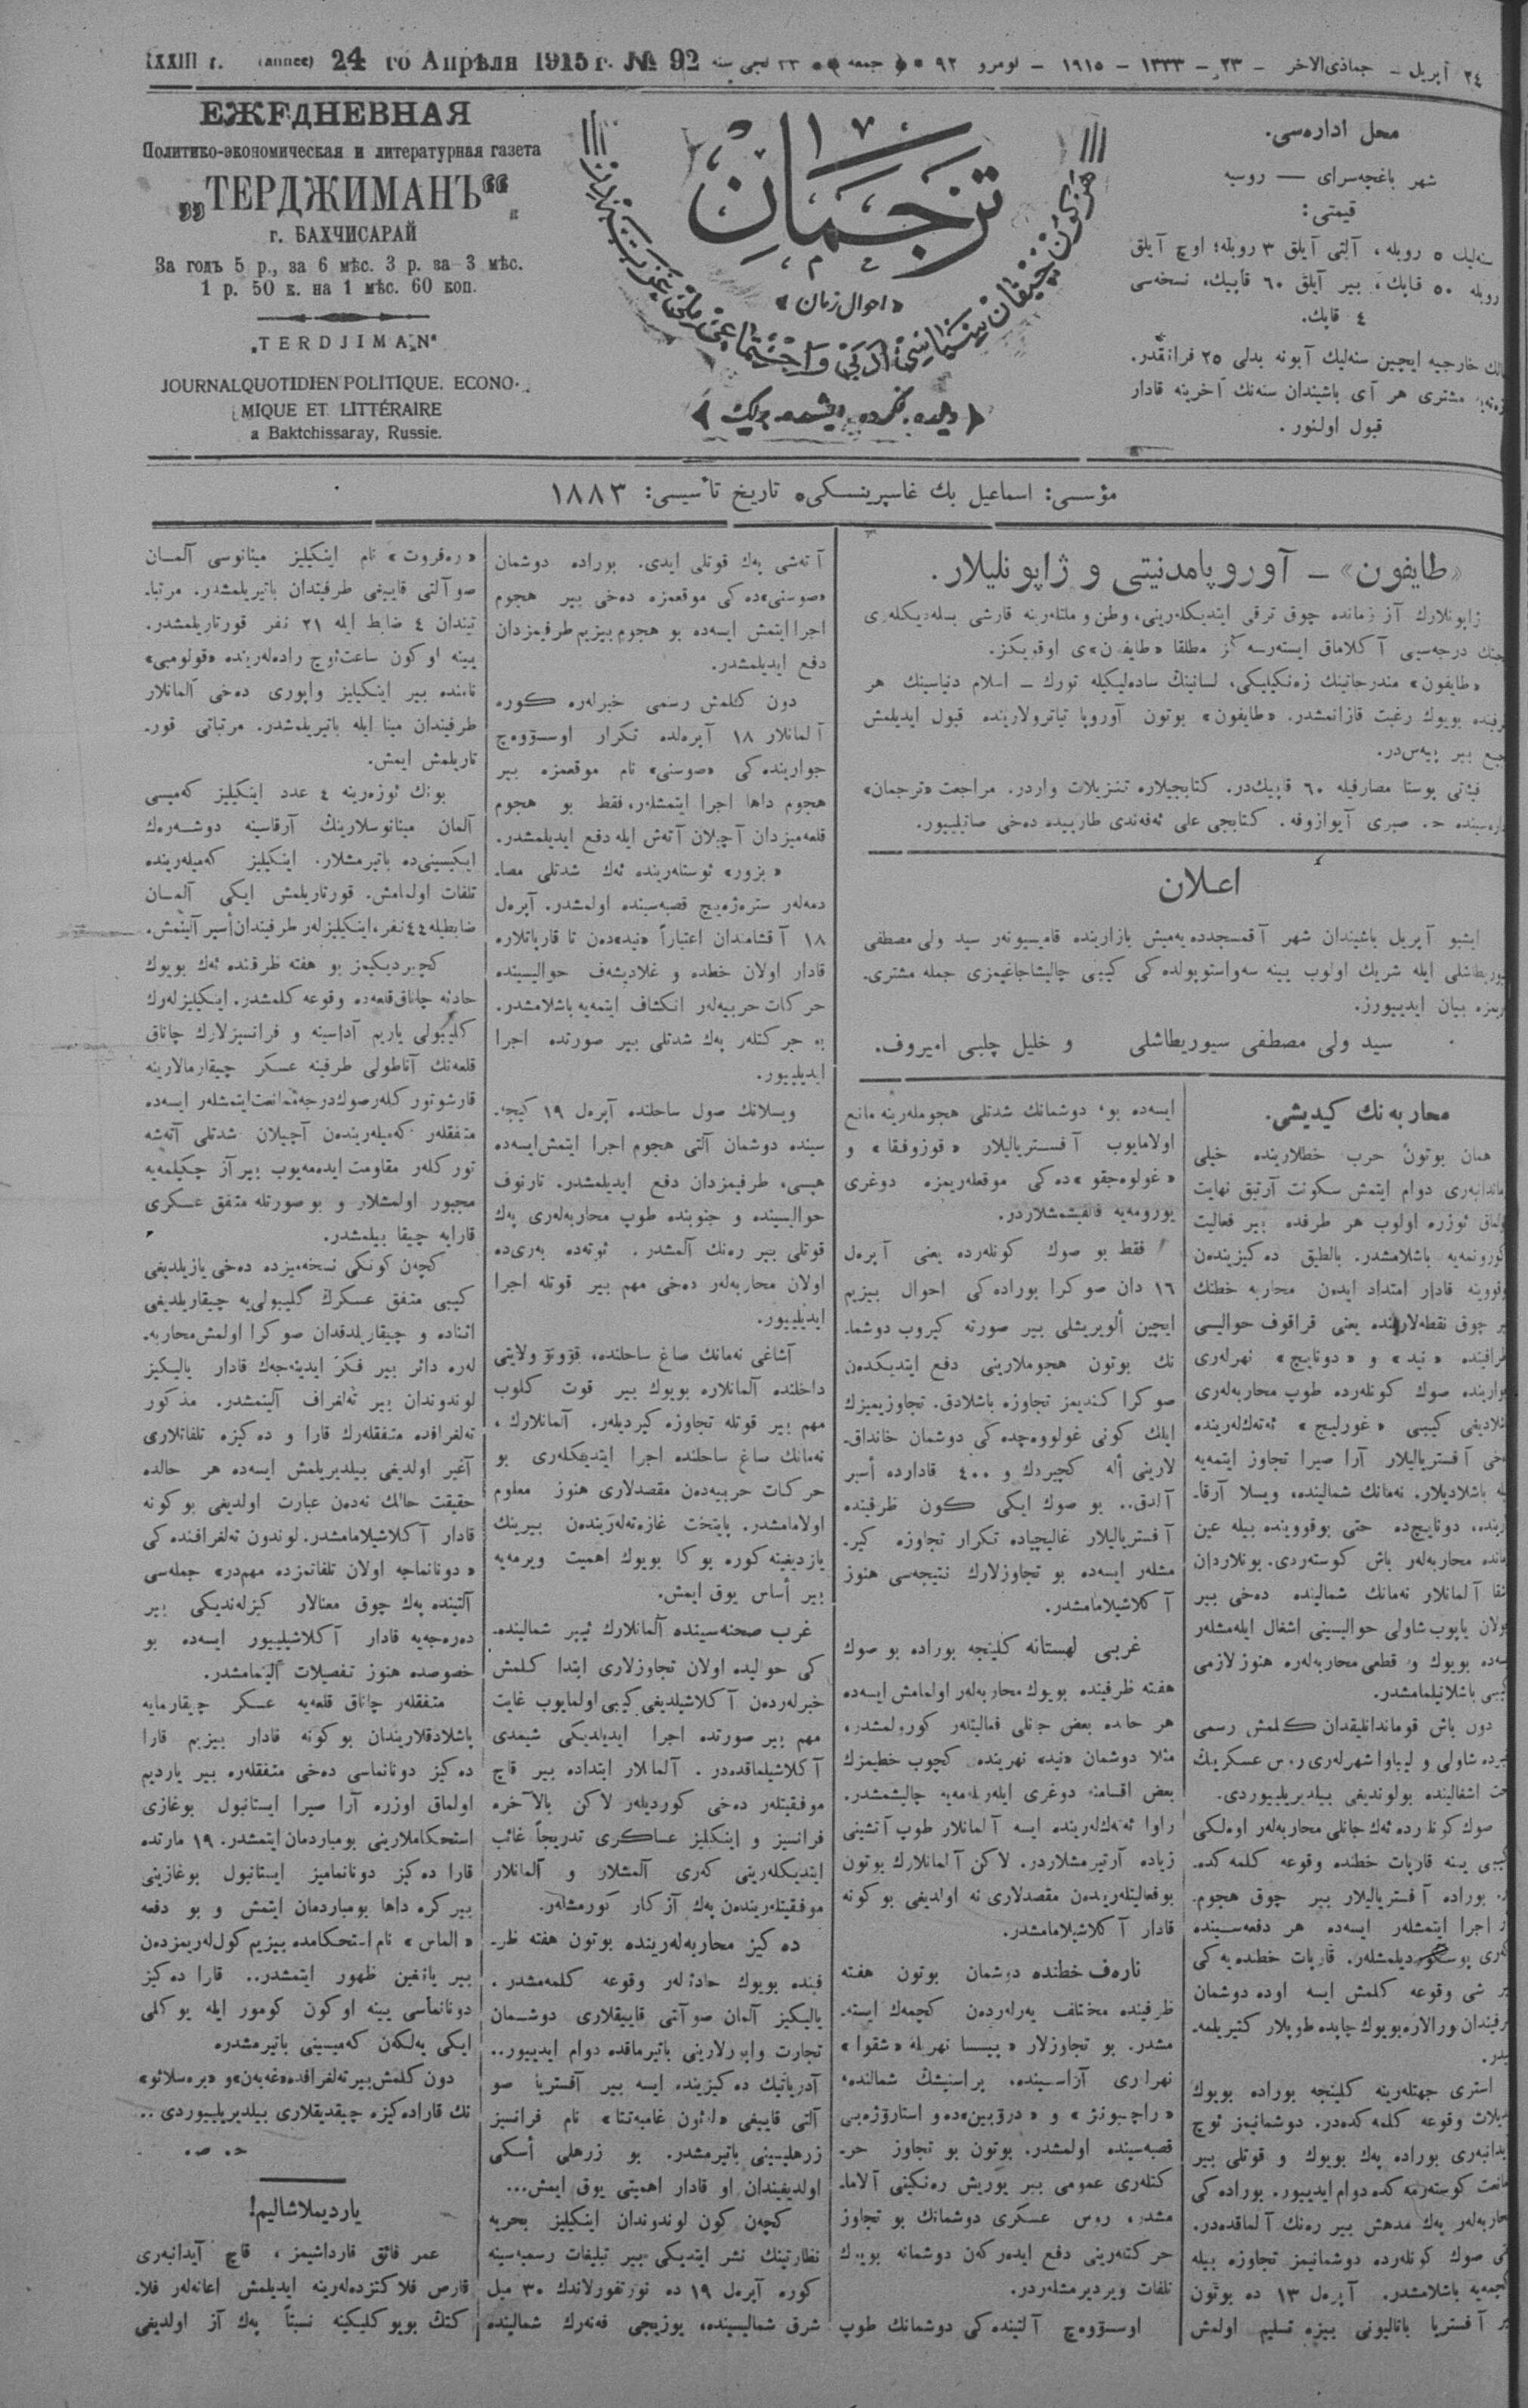 ٢٤ آپریل - جماذی‌الاخر - ٢٣ - ١٣٣٣ - ١٩١٥ - نومرو ٩٢ جمعه ٢٣ نجی سنه
XXXIII г. (année) 24 го Апрѣля 1915 г. № 92
ЕЖЕДНЕВНАЯ
Политико-экономическая и литературная газета
„ТЕРДЖИМАНЪ“
г. БАХЧИСАРАЙ
За годъ 5 р., за 6 мѣс. 3 р. за 3 мѣс.
1 р. 50 к. на 1 мѣс. 60 коп.
„TERDJIMAN“
JOURNAL QUOTIDIEN POLITIQUE. ECONO-
MIQUE ET LITTÉRAIRE
a Baktchissaray, Russie.
ترجمان
«احوال زمان»
دیلده، فکرده، ایشده بیرلیك
محل اداره‌سی.
شهر باغچه‌سرای — روسیه
قیمتی:
سنه‌لیك ٥ روبله، آلتی آیلق ٣ روبله؛ اوچ آیلق
روبله ٥٠ قاپك، بیر آیلق ٦٠ قاپیك، نسخه‌سی
٤ قاپك.
خارجیه ایچین سنه‌لیك آبونه بدلی ٢٥ فرانقدر.
مشتری هر آی باشیندان سنه‌نك آخرینه قادار
قبول اولنور.
مؤسسی: اسماعیل بك غاسپرینسكی، تاریخ تأسیسی: ١٨٨٣
«طایفون» ــ آوروپا مدنیتی و ژاپونلیلار.
ژاپونلارك آز زمانده چوق ترقی ایتدیكله‌رینی، وطن و ملتله‌رینه قارشی بسله‌دیكله‌ری
درجه‌سیی آكلاماق ایسته‌رسه‌كز مطلقا «طایفون»ی اوقویكز.
«طایفون» مندرجاتینك زه‌نكیلیكی، لسانینك ساده‌لیكیله تورك ــ اسلام دنیاسینك هر
طرفنده بویوك رغبت قازانمشدر. «طایفون» بوتون آوروپا تیاترولارینده قبول ایدیلمش
بیر پییه‌س‌در.
فیئاتی پوستا مصارفیله ٦٠ قاپیك‌در. كتابجیلاره تنزیلات واردر. مراجعت «ترجمان»
اداره‌سینده ح. صبری آیوازوفه. كتابجی علی ئه‌فه‌ندی طارپیده دخی صاتیلییور.
اعلان
ایشبو آپریل باشیندان شهر آقمسجدده یه‌میش بازارینده قامیسیونه‌ر سید ولی مصطفی
سیوریطاشلی ایله شریك اولوب یینه سه‌واستوپولده‌كی كیبی چالیشاجاغیمزی جمله مشتری-
لریمزه بیان ایدییورز.
سید ولی مصطفی سیوریطاشلی و خلیل چلبی امیروف.
محاربه‌نك كیدیشی.
همان بوتون حرب خطلارینده خیلی
دوام ایتمش سكونت آرتیق نهایت
ئوزره اولوب هر طرفده بیر فعالیت
كورونمه‌یه باشلامشدر. بالطیق ده‌كیزیندن
قادار امتداد ایدن محاربه خطنك
چوق نقطه‌لارینده یعنی قراقوف حوالیسی
«نید» و «دونایچ» نهرله‌ری
صوك كونلرده طوپ محاربه‌له‌ری
كیبی «غورلیچ» ئه‌ته‌كله‌رینده
آفستریالیلار آرا صیرا تجاوز ایتمه‌یه
باشلادیلار. نه‌مانك شمالینده، ویسلا آرقا-
دونایچ‌ده حتی بوقووینده بیله عین
محاربه‌لر باش كوسته‌ردی. بونلاردان
آلمانلار نه‌مانك شمالینده دخی بیر
شاولی حوالیسینی اشغال ایله‌مشلر
بویوك و قطعی محاربه‌لره هنوز لازمی
باشلانیلمامشدر.
دون باش قوماندانلیقدان كلمش رسمی
شاولی و لیباوا شهرلری روس عسكرینك
اشغالینده بولوندیغی بیلدیریلییوردی.
صوك كونلرده ئه‌ك جانلی محاربه‌لر اولكی
یینه قارپات خطنده وقوعه كلمه‌كده-
بوراده آفستریالیلار بیر چوق هجوم-
اجرا ایتمشلر ایسه‌ده هر دفعه‌سینده
قارپات خطنده یه‌كی
شی وقوعه كلمش ایسه اوده دوشمان
بورالاره بویوك چاپده طوپلار كتیریلمه-
ستری جهتله‌رینه كلینجه بوراده بویوك
وقوعه كلمه‌كده‌در. دوشمانیمز ئوچ
بوراده په‌ك بویوك و قوتلی بیر
كوسترمه‌كده دوام ایدییور. بوراده‌كی
محاربه‌لر په‌ك مدهش بیر ره‌نك آلماقده‌در.
صوك كونلرده دوشمانیمز تجاوزه بیله
كچمه‌یه باشلامشدر. آپره‌ل ١٣ ده بوتون
آفستریا باتالیونی بیزه تسلیم اولمش
ایسه‌ده بو، دوشمانك شدتلی هجومله‌رینه مانع
اولامایوب آفستریالیلار «قوزوفقا» و
«غولوه‌جقو»ده‌كی موقعله‌ریمزه دوغری
یورومه‌یه قالقیشمشلاردر.
فقط بو صوك كونلرده یعنی آپره‌ل
١٦ دان صوكرا بوراده‌كی احوال بیزیم
ایچین ألویریشلی بیر صورته كیروب دوشما-
نك بوتون هجوملارینی دفع ایتدیكدن
صوكرا كندیمز تجاوزه باشلادق. تجاوزیمیزك
ایلك كونی غولووه‌چده‌كی دوشمان خانداق-
لارینی أله كچیردك و ٤٠٠ قادارده أسیر
آلدق.. بو صوك ایكی كون ظرفینده
آفستریالیلار غالیچیاده تكرار تجاوزه كیر-
مشلر ایسه‌ده بو تجاوزلارك نتیجه‌سی هنوز
آكلاشیلامامشدر.
غربی لهستانه كلینجه بوراده بو صوك
هفته ظرفینده بویوك محاربه‌لر اولمامش ایسه‌ده
هر حالده بعض جانلی فعالیتلر كورولمشدر،
مثلا دوشمان «نید» نهرینده كچوب خطیمزك
بعض اقسامنه دوغری ایلرله‌مه‌یه چالیشمشدر.
راوا ئه‌ته‌كله‌رینده ایسه آلمانلار طوپ آتشینی
زیاده آرتیرمشلاردر. لاكن آلمانلارك بوتون
بوفعالیتله‌ریندن مقصدلاری نه اولدیغی بوكونه
قادار آكلاشیلامامشدر.
ناره‌ف خطنده دوشمان بوتون هفته
ظرفینده مختلف یه‌رلردن كچمه‌ك ایسته-
مشدر. بو تجاوزلار «پیسسا نهریله «شقوا»
نهراری آراسینده، پراسنیشك شمالنده،
«راچیونژ» و «دروبین»ده و استارؤژه‌بی
قصبه‌سینده اولمشدر. بوتون بو تجاوز حر-
كتله‌ری عمومی بیر یوریش ره‌نكینی آلاما-
مشدر، روس عسكری دوشمانك بو تجاوز
حركتله‌رینی دفع ایدركن دوشمانه بویوك
تلفات ویردیرمشلردر.
اوسسؤوه‌چ آلتینده‌كی دوشمانك طوپ
آتشی په‌ك قوتلی ایدی. بوراده دوشمان
«صوسنی»ده‌كی موقعمزه دخی بیر هجوم
اجرا ایتمش ایسه‌ده بو هجوم بیزیم طرفیمزدان
دفع ایدیلمشدر.
دون كلمش رسمی خبرلره كوره
آلمانلار ١٨ آپره‌لده تكرار اوسسؤوه‌چ
جوارینده‌كی «صوسنی» نام موقعمزه بیر
هجوم داها اجرا ایتمشلر، فقط بو هجوم
قلعه‌میزدان آچیلان آتش ایله دفع ایدیلمشدر.
«بزور» ئوستله‌رینده ئه‌ك شدتلی مصا-
دمه‌لر ستره‌ژه‌یچ قصبه‌سینده اولمشدر. آپره‌ل
١٨ آقشامندان اعتباراً «نید»دن تا قارپاتلاره
قادار اولان خطده و غلادیشه‌ف حوالیسینده
حركات حربیه‌لر انكشاف ایتمه‌یه باشلامشدر.
بو حركتلر په‌ك شدتلی بیر صورتده اجرا
ایدیلییور.
ویسلانك صول ساحلنده آپره‌ل ١٩ كیجه-
سینده دوشمان آلتی هجوم اجرا ایتمش ایسه‌ده
هپسی، طرفیمزدان دفع ایدیلمشدر. تارنوف
حوالیسینده و جنوبنده طوپ محاربه‌له‌ری په‌ك
قوتلی بیر ره‌نك آلمشدر. ئوته‌ده به‌ری‌ده
اولان محاربه‌لر دخی مهم بیر قوتله اجرا
ایدیلییور.
آشاغی نه‌مانك صاغ ساحلنده، قوونؤ ولایتی
داخلنده آلمانلاره بویوك بیر قوت كلوب
مهم بیر قوتله تجاوزه كیردیلر. آلمانلارك،
نه‌مانك صاغ ساحلنده اجرا ایتدیكله‌ری بو
حركات حربیه‌دن مقصدلاری هنوز معلوم
اولامامشدر. پایتخت غازه‌ته‌له‌ریندن بیرینك
یازدیغینه كوره بوكا بویوك اهمیت ویرمه‌یه
بیر أساس یوق ایمش.
غرب صحنه‌سینده آلمانلارك ئیپر شمالینده-
كی حوالیده اولان تجاوزلاری ابتدا كلمش
خبرلردن آكلاشیلدیغی كیبی اولمایوب غایت
مهم بیر صورتده اجرا ایدیلدیكی شیمدی
آكلاشیلماقده‌در. آلمانلار ابتداده بیر قاچ
موفقیتلر دخی كوردیلر لاكن بالآخره
فرانسیز و اینكلیز عساكری تدریجاً غائب
ایتدیكله‌رینی كه‌ری آلمشلار و آلمانلار
موفقیتله‌ریندن په‌ك آز كار كورمشلر.
ده‌كیز محاربه‌له‌رینده بوتون هفته ظر-
فینده بویوك حادثه‌لر وقوعه كلمه‌مشدر.
یالیكیز آلمان صو آلتی قاییقلاری دوشمان
تجارت واپورلارینی باتیرماقده دوام ایدییور..
آدریاتیك ده‌كیزینده ایسه بیر آفستریا صو
آلتی قاییغی «لئون غامبه‌تتا» نام فرانسیز
زرهلیسینی باتیرمشدر. بو زرهلی أسكی
اولدیغیندان او قادار اهمیتی یوق ایمش...
كچه‌ن كون لوندوندان اینكیلیز بحریه
نظارتینك نشر ایتدیكی بیر تبلیغات رسمیه‌سینه
كوره آپره‌ل ١٩ ده نورتفورلاندك ٣٠ میل
شرق شمالیسینده، یوزیجی فه‌نه‌رك شمالینده
«ره‌قروت» نام اینكیلیز مینانوسی آلمان
صو آلتی قاییغی طرفیندان باتیریلمشدر. مرتبا-
تیندان ٤ ضابط ایله ٢١ نفر قورتاریلمشدر.
یینه او كون ساعت ئوچ راده‌له‌رینده «قولومبی»
نامنده بیر اینكیلیز واپوری دخی آلمانلار
طرفیندان مینا ایله باتیریلمشدر. مرتباتی قور-
تاریلمش ایمش.
بونك ئوزرینه ٤ عدد اینكیلیز كه‌میسی
آلمان مینانوسلارینك آرقاسینه دوشه‌رك
ایكیسینی‌ده باتیرمشلار. اینكیلیز كه‌میله‌رینده
تلفات اولمامش. قورتاریلمش ایكی آلمان
ضابطیله ٤٤ نفر، اینكیلیزلر طرفیندان أسیر آلینمش.
كچیردیكیمز بو هفته ظرفنده ئه‌ك بویوك
حادثه چاناق قلعه‌ده وقوعه كلمشدر. اینكیلیزلرك
كلیبولی یاریم آداسینه و فرانسیزلارك چاناق
قلعه‌نك آناطولی طرفینه عسكر چیقارمالارینه
قارشو توركلر صوك درجه ممانعت ایتمشلر ایسه‌ده
متفقلر كه‌میله‌ریندن آچیلان شدتلی آتشه
توركلر مقاومت ایده‌مه‌یوب بیر آز چكیلمه‌یه
مجبور اولمشلار و بو صورتله متفق عسكری
قارایه چیقا بیلمشدر.
كچه‌ن كونكی نسخه‌میزده دخی یازیلدیغی
كیبی متفق عسكرك گلیبولی‌یه چیقاریلدیغی
اثناده و چیقاریلدقدان صوكرا اولمش محاربه-
لره دائر بیر فكر ایدینه‌جه‌ك قادار یالیكیز
لوندوندان بیر ته‌لغراف آلینمشدر. مذكور
ته‌لغرافده متفقلرك قارا و ده‌كیزه تلفاتلاری
آغیر اولدیغی بیلدیریلمش ایسه‌ده هر حالده
حقیقت حالك نه‌دن عبارت اولدیغی بوكونه
قادار آكلاشیلامامشدر. لوندون ته‌لغرافنده‌كی
«دونانماجه اولان تلفاتمزده مهم‌در» جمله‌سی
آلتینده په‌ك چوق معنالار كیزله‌ندیكی بیر
دره‌جه‌یه قادار آكلاشیلییور ایسه‌ده بو
خصوصده هنوز تفصیلات آلینمامشدر.
متفقلر چاناق قلعه‌یه عسكر چیقارمایه
باشلادقلاریندان بوكونه قادار بیزیم قارا
ده‌كیز دونانماسی دخی متفقلره بیر یاردیم
اولماق اوزره آرا صیرا ایستانبول بوغازی
استحكاملارینی بومباردمان ایتمشدر. ١٩ مارتده
قارا ده‌كیز دونانمامیز ایستانبول بوغازینی
بیر كره داها بومباردمان ایتمش و بو دفعه
«الماس» نام استحكامده بیزیم كولله‌ریمزدن
بیر یانغین ظهور ایتمشدر.. قارا ده‌كیز
دونانماسی یینه او كون كومور ایله یوكلی
ایكی یه‌لكه‌ن كه‌میسینی باتیرمشدر.
دون كلمش بیر ته‌لغرافده «غه‌به‌ن» و «بره‌سلائو»
نك قاراده‌كیزه چیقدیقلاری بیلدیریلییوردی..
ح. ص.
یاردیملاشالیم!
عمر فائق قارداشیمز، قاچ آیدانبه‌ری
قارص فلاكتزده‌له‌رینه ایدیلمش اعانه‌لر فلا-
كتك بویوكلیكینه نسبتاً په‌ك آز اولدیغی